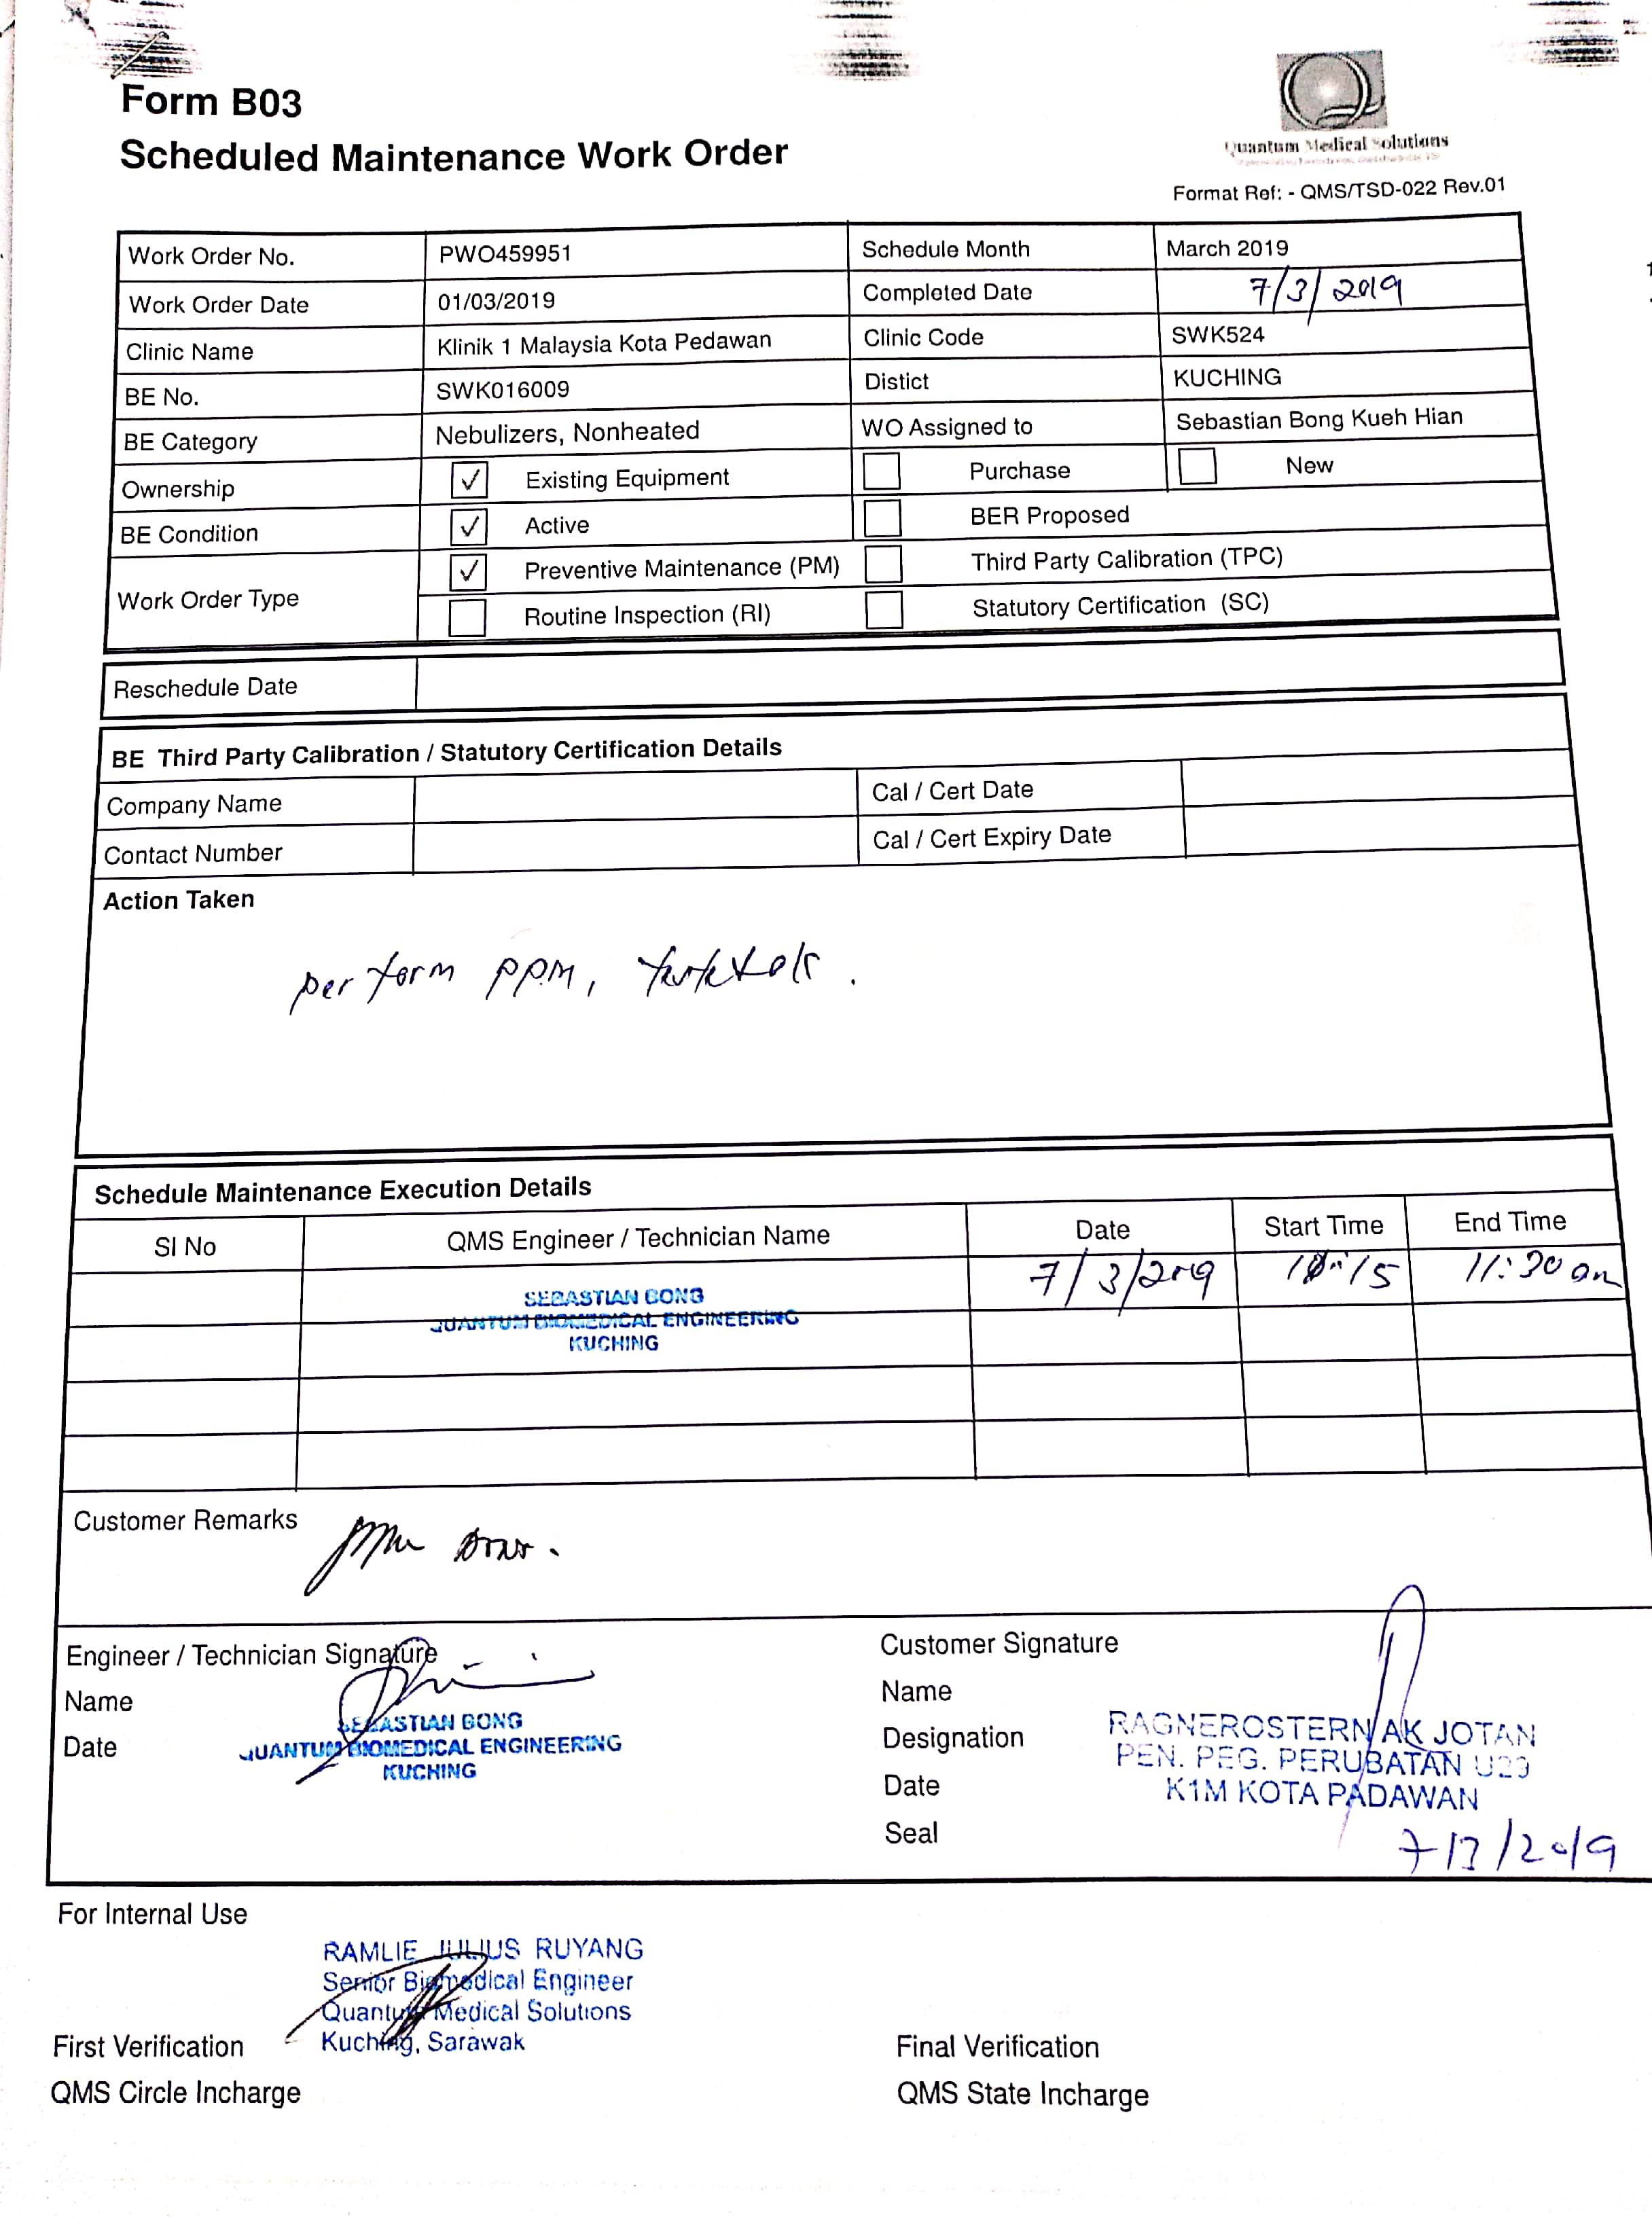 Form B03
Scheduled Maintenance Work Order
Quantum Medical Solutions
Format Ref: - QMS/TSD-022 Rev.01
Work Order No. PWO459951 Schedule Month March 2019
Work Order Date 01/03/2019 Completed Date 7/3/2019
Clinic Name Klinik 1 Malaysia Kota Pedawan Clinic Code SWK524
BE No. SWK016009 Distict KUCHING
BE Category Nebulizers, Nonheated WO Assigned to Sebastian Bong Kueh Hian
Ownership ✓ Existing Equipment Purchase New
BE Condition ✓ Active BER Proposed
Work Order Type ✓ Preventive Maintenance (PM) Third Party Calibration (TPC)
Routine Inspection (RI) Statutory Certification (SC)
Reschedule Date
BE Third Party Calibration / Statutory Certification Details
Company Name Cal / Cert Date
Contact Number Cal / Cert Expiry Date
Action Taken
perform PPM,
Schedule Maintenance Execution Details
SI No QMS Engineer / Technician Name Date Start Time End Time
7/3/2019 11:30 am
SEBASTIAN BONG
QUANTUM BIOMEDICAL ENGINEERING
KUCHING
Customer Remarks
Engineer / Technician Signature
Name
Date
SEBASTIAN BONG
QUANTUM BIOMEDICAL ENGINEERING
KUCHING
Customer Signature
Name
Designation
Date
Seal
RAGNEROSTERN AK JOTAN
PEN. PEG. PERUBATAN U29
K1M KOTA PADAWAN
7/3/2019
For Internal Use
RAMLIE JULIUS RUYANG
Senior Biomedical Engineer
Quantum Medical Solutions
Kuching, Sarawak
First Verification Final Verification
QMS Circle Incharge QMS State Incharge